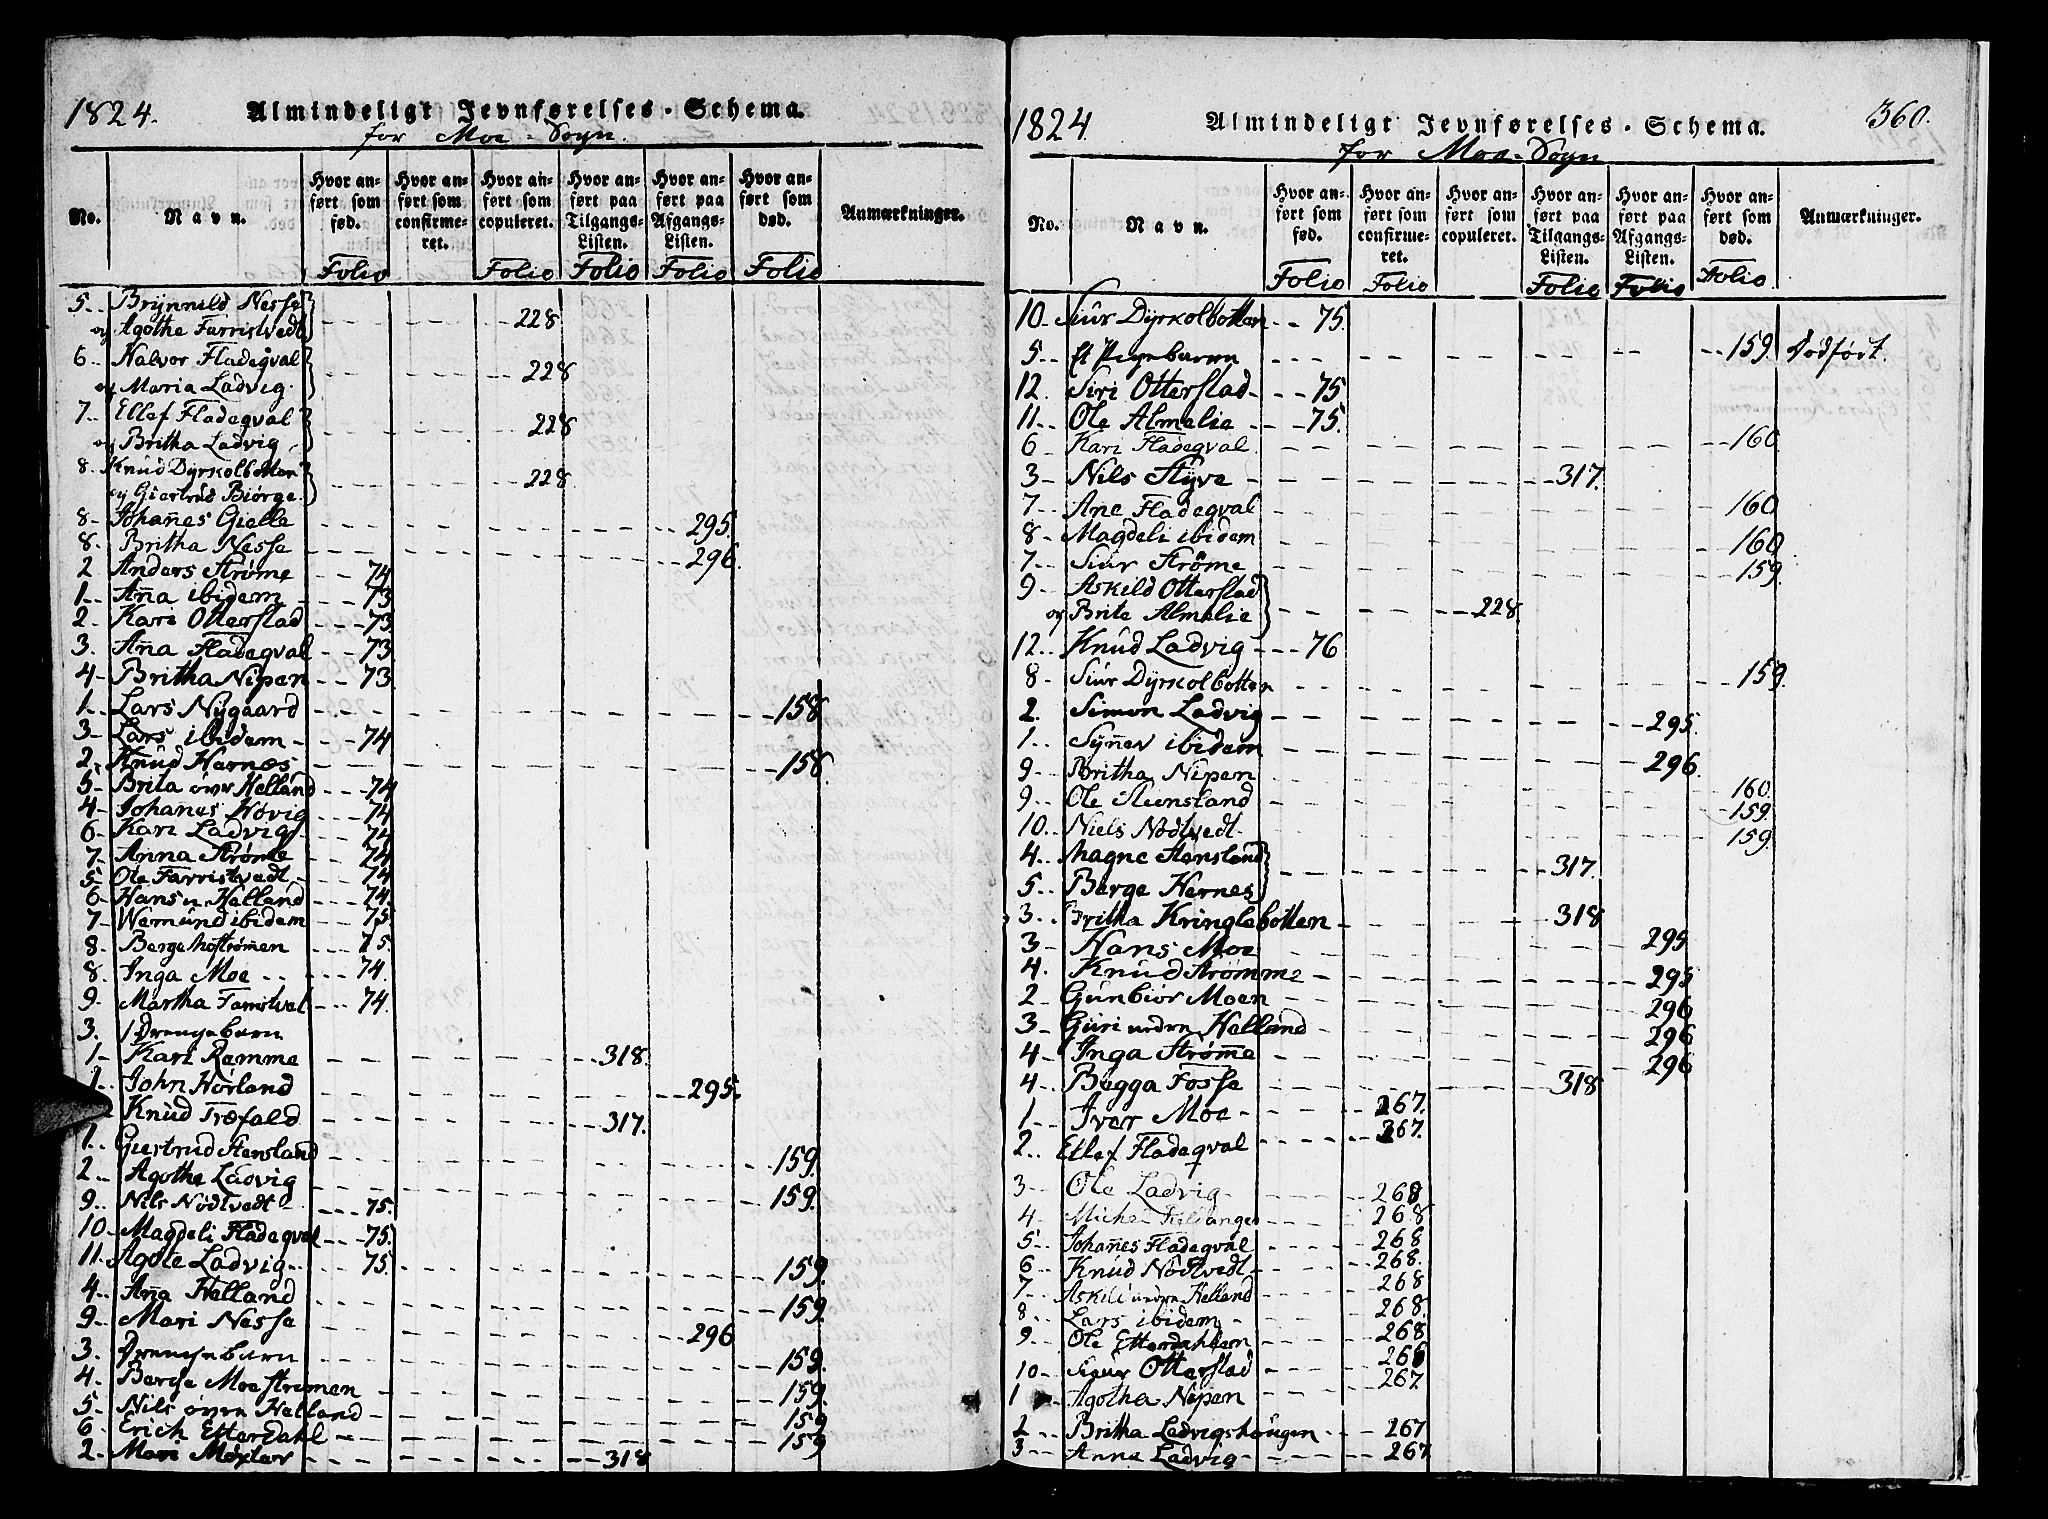 1824. Almindeligt Jevnførelses-Schema.
for Moe-Sogn.
No. Navn. Hvor anført som fød. Hvor anført som confirmeret. Hvor anført som copuleret. Hvor anført paa Tilgangs-Listen. Hvor anført paa Afgangs-Listen. Hvor anført som død. Anmærkninger.
Folio Folio Folio Folio Folio
5.. Brynnild Nesse
og Agothe Farristvedt 228
6.. Halvor Fladeqval
og Maria Ladvig. 228
7.. Ellef Fladeqval
og Britha Ladvig 228
8. Knud Dyrkolbotten
og Giertrud Biørge. 228
8- Johanes Gielle 295.
8. Britha Nesse 296.
2 Anders Strøme 74
1.. Anna ibidem 73
2. Kari Otterstad 73
3. Anna Fladeqval 73
4- Britha Nipen 73
1.. Lars Nygaard 158
3.. Lars ibidem 74
2. Knud Harnæs 158.
5- Brita øvr Helland 74
4- Johanes Høvig 74
6- Kari Ladvig 74
7- Anna Strøme 74
5- Ole Farristvedt 74
6- Hans n Helland 74.
7- Wemund ibidem 75
8- Berge Mostrømen 75
8. Inga Moe 74.
9. Martha 74.
3. 1 Drengebarn
1- Kari Ramme 318.
1.. John Hørland 295.
Knud Træfald 317.
1.. Giertrud Stensland 159.
2.. Agothe Ladvig 159.
9.. Nils Nødtvedt 75.
10. Magdeli Fladeqval 75.
11. Agote Ladvig 75.
4.. Anna Helland 159.
9.. Mari Nesse 159.
3. Drengebarn 296
4. Berge Moestrømen 159.
5- Nils øvre Helland 159.
6- Erich Etterdahl 159
2- Mari 318
1824. Almindeligt Jevnførelses-Schema. 360.
for Moe-Sogn
No. Navn. Hvor anført som fød. Hvor anført som confirmeret. Hvor anført som copuleret. Hvor anført paa Tilgangs-Listen. Hvor anført paa Afgangs-Listen. Hvor anført som død. Anmærkninger.
Folio Folio Folio Folio Folio
10. Siur Dyrkolbotten 75.
5.. Et Pigebarn 159. Dødført.
12. Siri Otterstad 75
11.. Ole Almelie 75.
6 Kari Fladeqval 160
3- Nils Styve 317.
7.. Ane Fladeqval 160
8- Magdeli ibidem 160
7.. Siur Strøme 159.
9.. Askild Otterstad
og Brite Almelie 228
12.. Knud Ladvig 76
8- Siur Dyrkolbotten 159.
2. Simon Ladvig 295.
1.. Synnev ibidem 296.
9.. Britha Nipen 160.
9.. Ole Stensland 159.
10.. Niels Nødtvedt 159.
4.. Magne Stensland 317.
5.. Berge Hernes
3.. Britha Kringlebotten 318
3- Hans Moe 295
4. Knud Strømme 295
2- Gunbiør Moen 296
3- Guri nedre Helland 296
4- Inga Strøme 296
4.. Begga Fosse 318
1- Iver Moe 267.
2.. Ellef Fladeqval 267.
3.. Ole Ladvig 268
4.. Michel 268
5.. Johannes Fladeqval 268
6.. Knud Nødtvedt 268.
7.. Askild nedre Helland 268
8.. Lars ibidem 268.
9.. Ole Etterdahlen 268
10. Siur Otterstad 268
1 Agotha Nipen 267.
2.. Britha Ladvigshougen 267
3.. Anna Ladvig 267